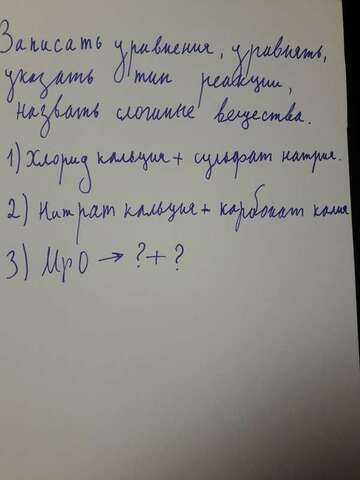 Записать уравнения, уравнять,
указать тип реакции,
назвать сложные вещества.
1) Хлорид кальция + сульфат натрия.
2) Нитрат кальция + карбонат калия
3) МрО → ? + ?